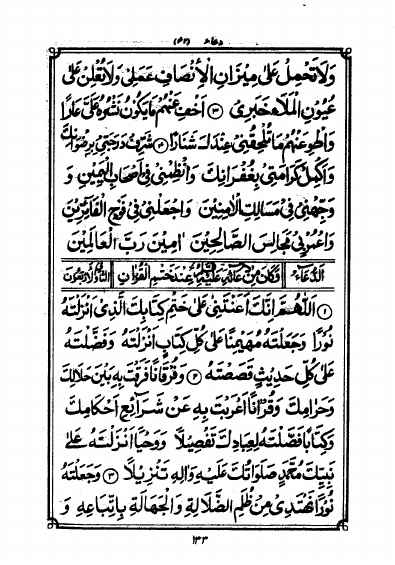 دعاء (٤٢)
وَلَا تَحْمِلْ عَلَى مِيزَانِ الْإِنْصَافِ عَمَلِي وَلَا تُعْلِنْ عَلَى
عُيُونِ الْمَلَاءِ خَبَرِي ③ أَخْفِ عَنْهُمْ مَا يَكُونُ نَشْرُهُ عَلَيَّ عَارًا
وَاطْوِ عَنْهُمْ مَا يُلْحِقُنِي عِنْدَكَ شَنَارًا ④ شَرِّفْ دَرَجَتِي بِرِضْوَانِكَ
وَأَكْمِلْ كَرَامَتِي بِغُفْرَانِكَ وَانْظِمْنِي فِي أَصْحَابِ الْيَمِينِ وَ
وَجِّهْنِي فِي مَسَالِكِ الْآمِنِينَ وَاجْعَلْنِي فِي فَوْجِ الْفَائِزِينَ
وَاعْمُرْ بِي مَجَالِسَ الصَّالِحِينَ اٰمِينَ رَبَّ الْعَالَمِينَ
الدُّعَاءُ وَكَانَ مِنْ دُعَائِهِ عَلَيْهِ السَّلَامُ عِنْدَ خَتْمِ الْقُرْاٰنِ الثَّانِي وَالْأَرْبَعُونَ
① اَللّٰهُمَّ إِنَّكَ أَعَنْتَنِي عَلَى خَتْمِ كِتَابِكَ الَّذِي أَنْزَلْتَهُ
نُورًا وَجَعَلْتَهُ مُهَيْمِنًا عَلَى كُلِّ كِتَابٍ أَنْزَلْتَهُ وَفَضَّلْتَهُ
عَلَى كُلِّ حَدِيثٍ قَصَصْتَهُ ② وَفُرْقَانًا فَرَقْتَ بِهِ بَيْنَ حَلَالِكَ
وَحَرَامِكَ وَقُرْاٰنًا أَعْرَبْتَ بِهِ عَنْ شَرَائِعِ أَحْكَامِكَ
وَكِتَابًا فَصَّلْتَهُ لِعِبَادِكَ تَفْصِيلًا وَوَحْيًا أَنْزَلْتَهُ عَلَى
نَبِيِّكَ مُحَمَّدٍ صَلَوَاتُكَ عَلَيْهِ وَاٰلِهِ تَنْزِيلًا ③ وَجَعَلْتَهُ
نُورًا نَهْتَدِي مِنْ ظُلَمِ الضَّلَالَةِ وَالْجَهَالَةِ بِاتِّبَاعِهِ وَ
١٣٣